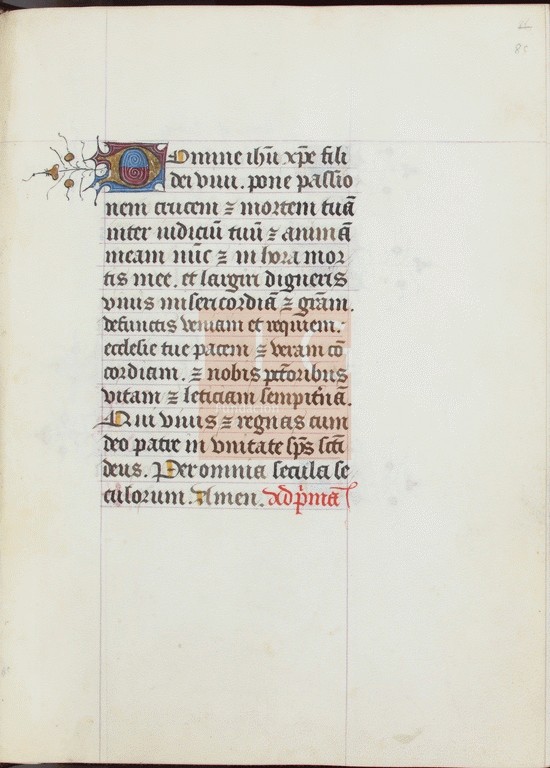 85
Domine ihū xp̄e fili
dei viui. pone passio
nem crucem ⁊ mortem tuā
inter iudiciū tuū ⁊ animā
meam nūc ⁊ in hora mor
tis mee. et largiri digneris
viuis misericordiā ⁊ grām.
defunctis veniam et requiem.
ecclesie tue pacem ⁊ veram cō
cordiam. ⁊ nobis pctōribus
vitam ⁊ leticiam sempitnā.
Qui viuis ⁊ regnas cum
deo patre in vnitate sp̄s sctī
deus. Per omnia secula se
culorum. Amen. Ad p̄mā